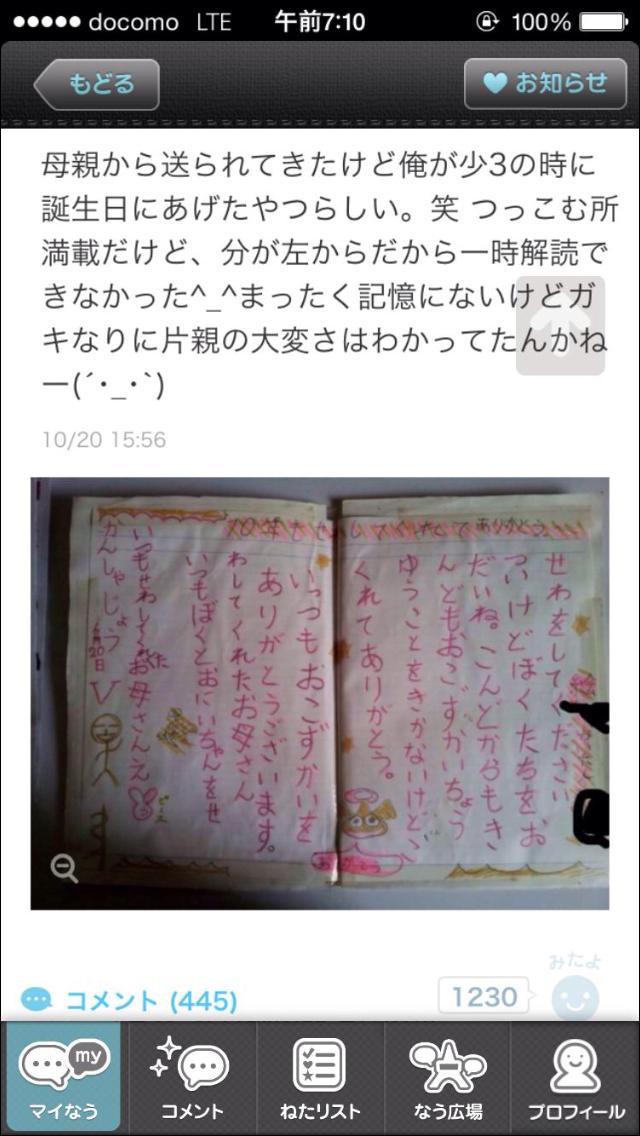 docomo LTE 午前7:10 100%
もどる
お知らせ
母親から送られてきたけど俺が少3の時に
誕生日にあげたやつらしい。笑 つっこむ所
満載だけど、分が左からだから一時解読で
きなかった^_^まったく記憶にないけどガ
キなりに片親の大変さはわかってたんかね
ー(´･_･`)
10/20 15:56
かんしゃじょう
6月20日
いつもせわしてくれたお母さんえ
いつもぼくとおにいちゃんをせ
わしてくれたお母さん
ありがとうございます。
いっつもおこずかいを
くれてありがとう。
ゆうことをきかないけどこ
んどもおこずかいちょう
だいね。こんどからもき
ついけどぼくたちをお
せわをしてください
コメント (445)
1230
みたよ
my
マイなう
コメント
ねたリスト
なう広場
プロフィール